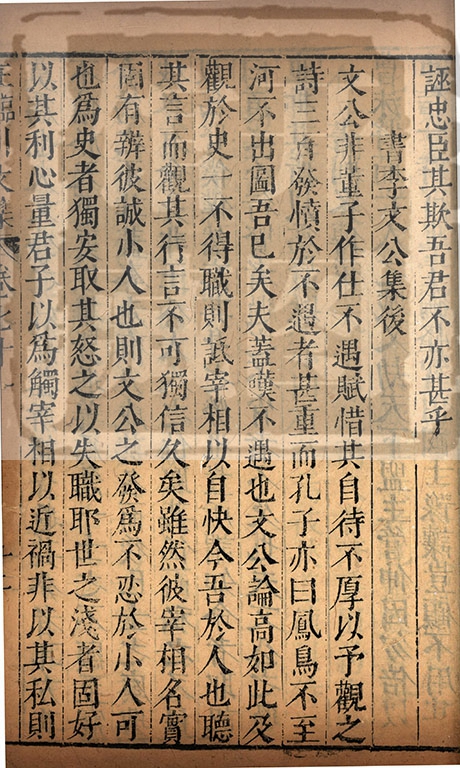 誣忠臣其欺吾君不亦甚乎
書李文公集後
文公非董子作仕不遇賦惜其自待不厚以予觀之
詩三百發憤於不遇者甚重而孔子亦曰鳳鳥不至
河不出圖吾已矣夫蓋嘆不遇也文公論高如此及
觀於史一不得職則詆宰相以自快今吾於人也聽
其言而觀其行言不可獨信久矣雖然彼宰相名實
固有辨彼誠小人也則文公之發爲不忍於小人可
也爲史者獨安取其怒之以失職耶世之淺者固好
以其利心量君子以爲觸宰相以近禍非以其私則